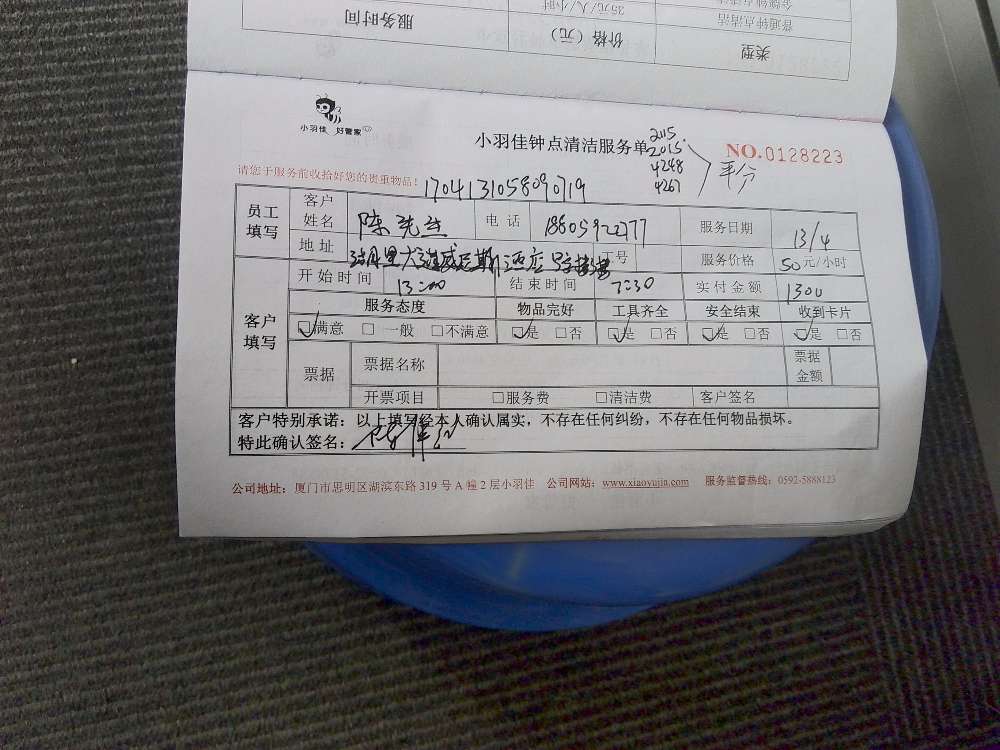 类型 价格（元） 服务时间
普通钟点清洁 35元/人/小时
小羽佳 好管家
小羽佳钟点清洁服务单
2115
2015
4248
4267
平分
NO.0128223
请您于服务前收拾好您的贵重物品！
1704131058090719
员工填写 客户姓名 陈先生 电话 18605922777 服务日期 13/4
地址 酒店 号 服务价格 50元/小时
客户填写 开始时间 13:00 结束时间 7:30 实付金额 1300
服务态度 物品完好 工具齐全 安全结束 收到卡片
☑满意 □一般 □不满意 ☑是 □否 ☑是 □否 ☑是 □否 ☑是 □否
票据 票据名称 票据金额
开票项目 □服务费 □清洁费 客户签名
客户特别承诺：以上填写经本人确认属实，不存在任何纠纷，不存在任何物品损坏。
特此确认签名：
公司地址：厦门市思明区湖滨东路319号A幢2层小羽佳 公司网站：www.xiaoyujia.com 服务监督热线：0592-5888123